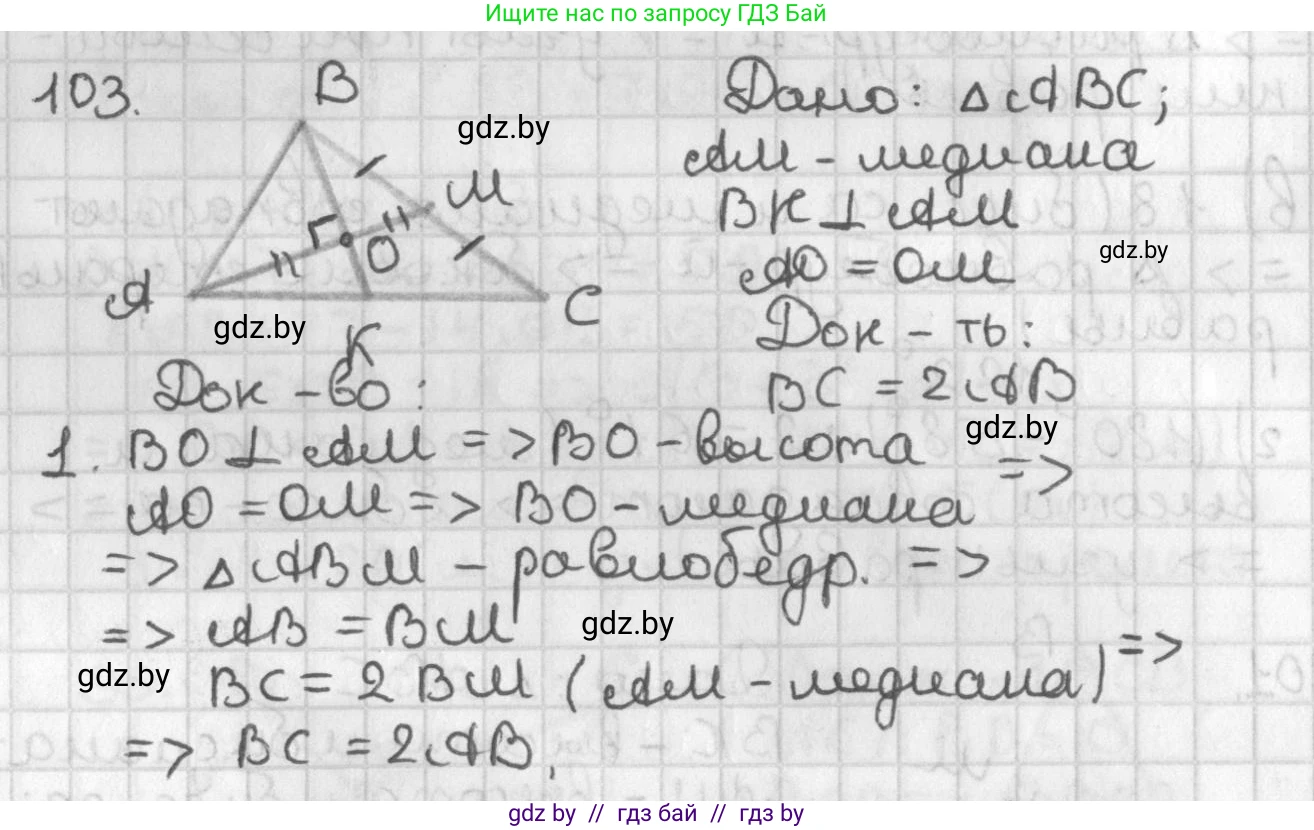 Ищите нас по запросу ГДЗ Бай
103.
B
gdz.by
M
O
A
C
K
gdz.by
Дано: △ABC;
AM - медиана
BK ⊥ AM
gdz.by
AO = OM
Док - ть:
BC = 2AB
gdz.by
Док - во:
1. BO ⊥ AM => BO - высота
AO = OM => BO - медиана =>
=> △ABM - равнобедр. =>
=> AB = BM
gdz.by
gdz.by
BC = 2 BM (AM - медиана) =>
=> BC = 2AB.
gdz by // гдз бай // гдз by